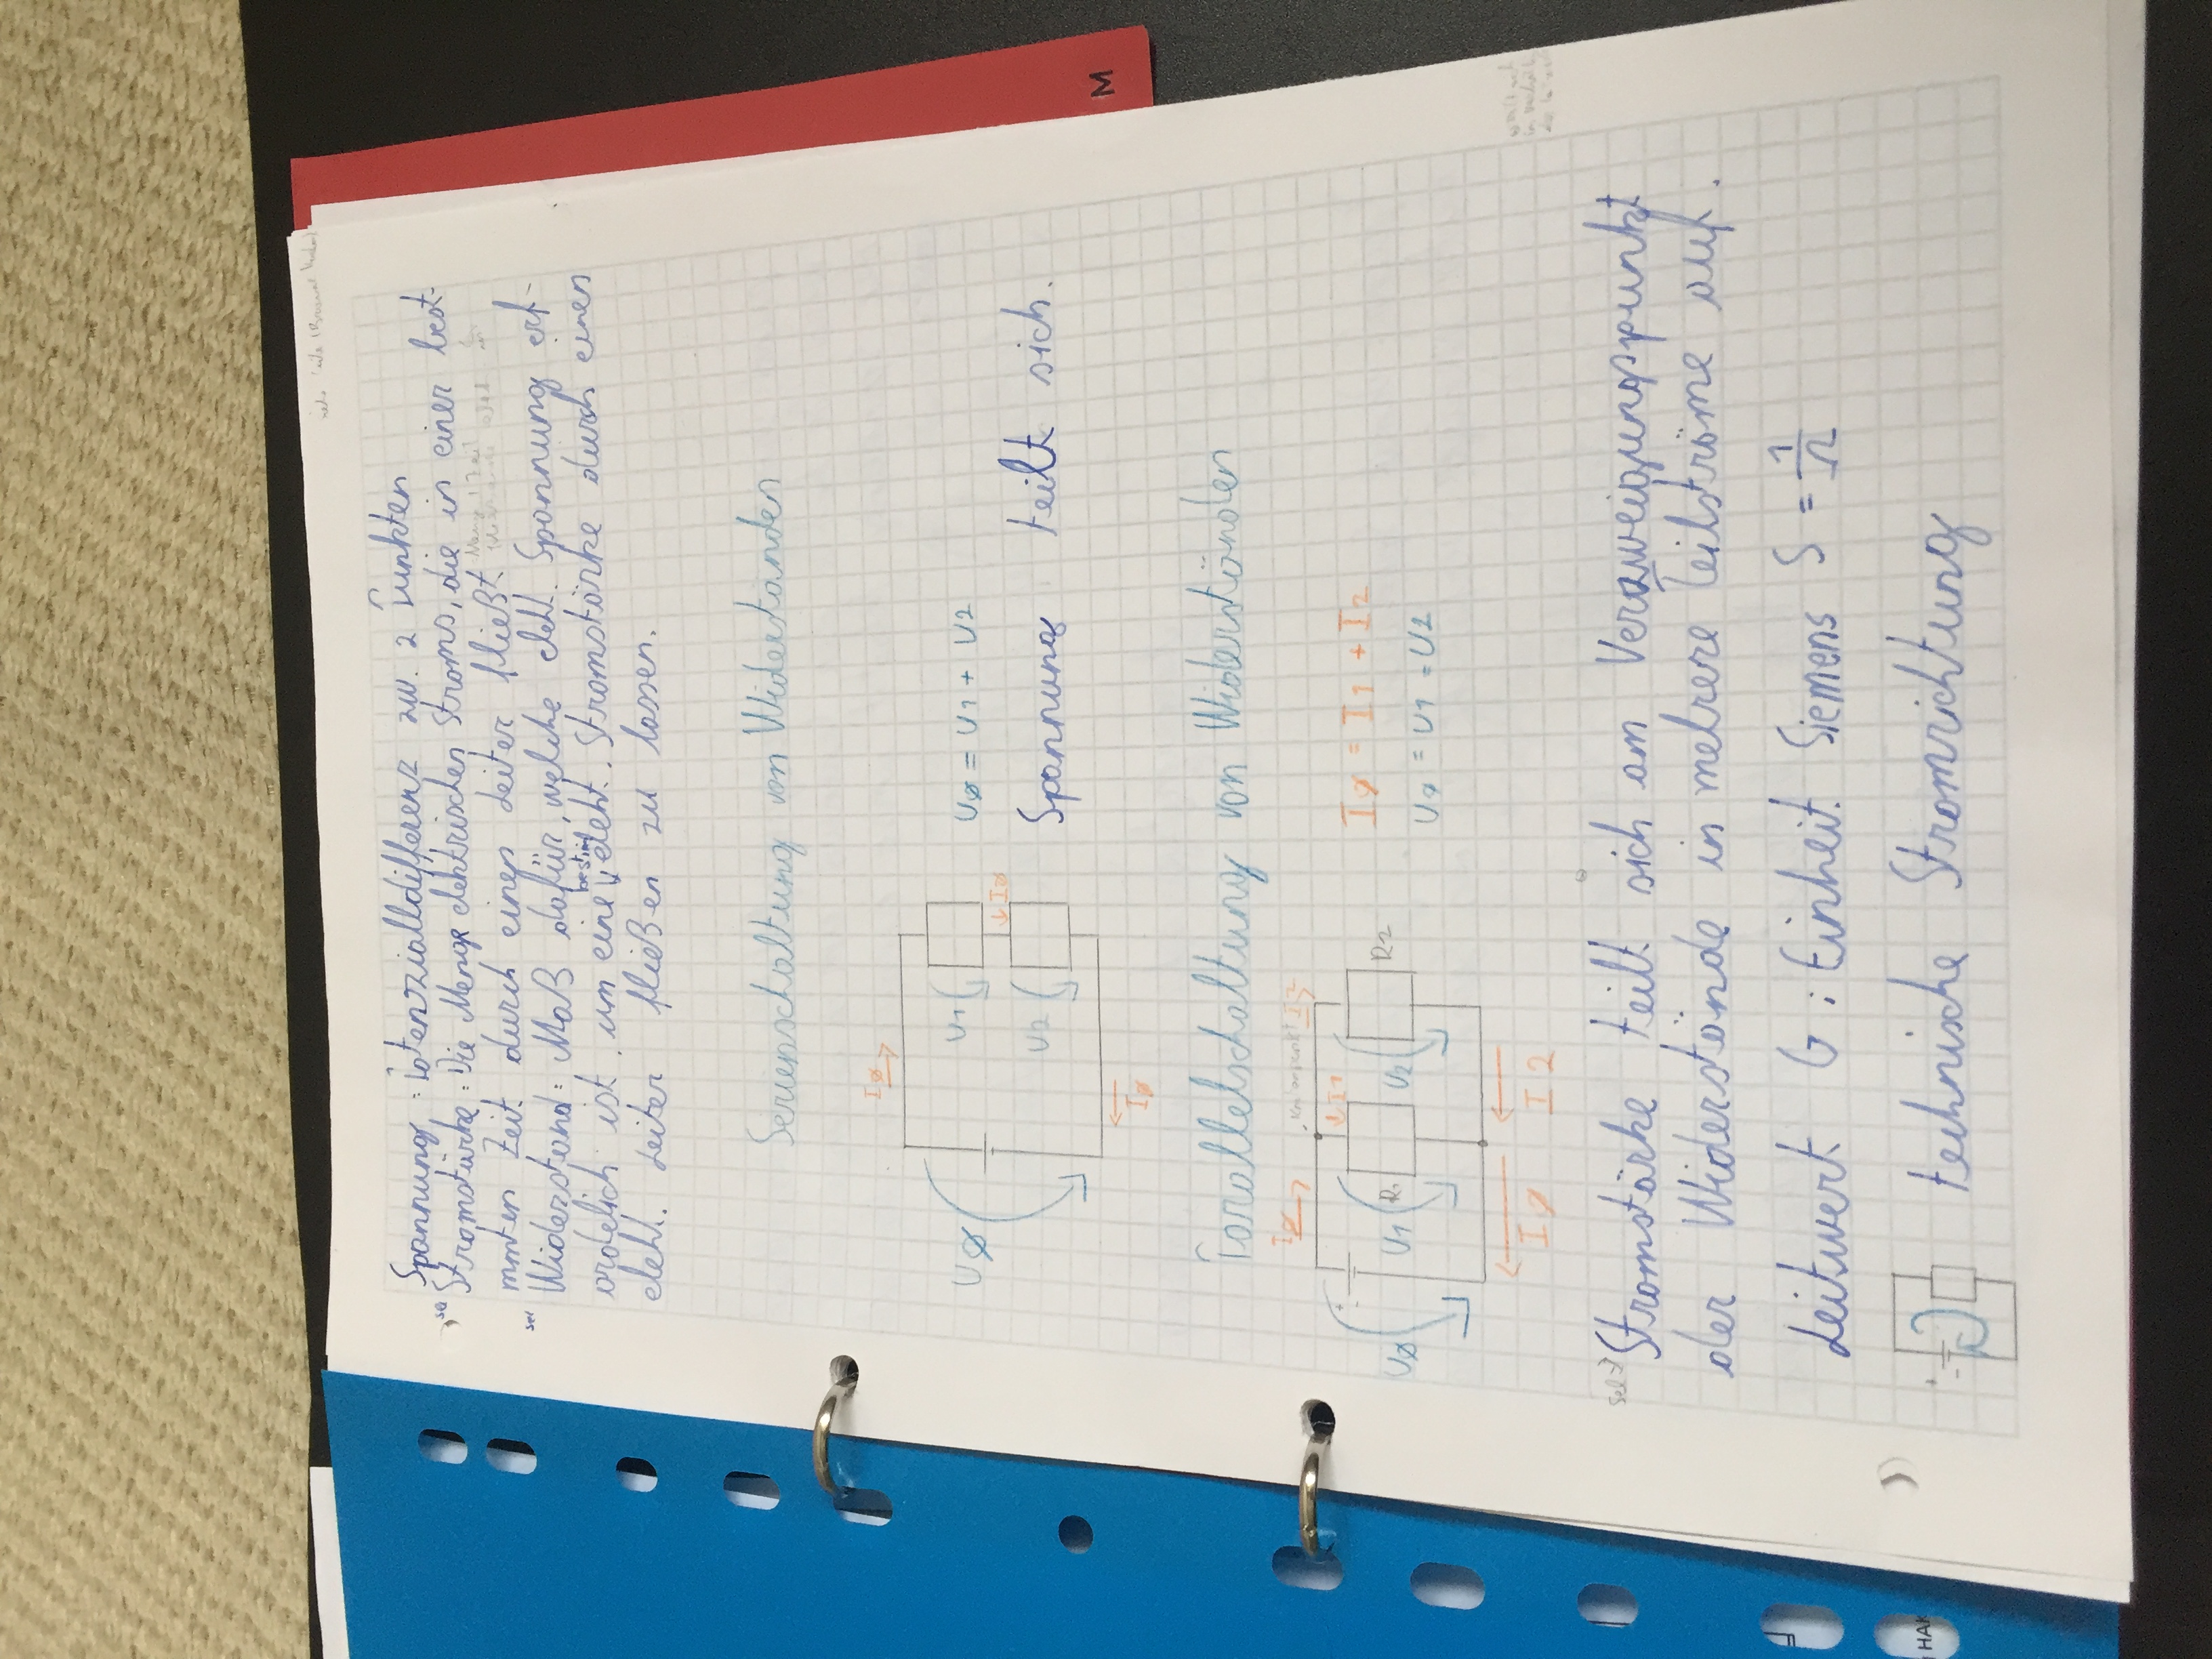 Spannung: Potenzialldifferenz zw. 2 Punkten
Stromstärke: Die Menge elektrischen Stroms, die in einer best-
mmten Zeit durch einen Leiter fließt
Widerstand: Maß dafür, welche elekt. Spannung erf-
ordelich ist, um eine bestim elekt. Stromstärke durch einen
elekt. Leiter fließen zu lassen.
Serienschaltung von Widerständen
IØ
UØ
U1
UØ = U1 + U2
IØ
U2
Spannung teilt sich.
IØ
M
Parallelschaltung von Widerständen
IØ
I2
I1
+
-
UØ
U1
R1
U2
R2
IØ = I1 + I2
UØ = U1 = U2
IØ
I2
Stromstärke teilt sich am Verzweigungspunkt
der Widerstände in mehrere Teilströme auf.
Leitwert G: Einheit Siemens S = 1/Ω
HAK
+
-
technische Stromrichtung